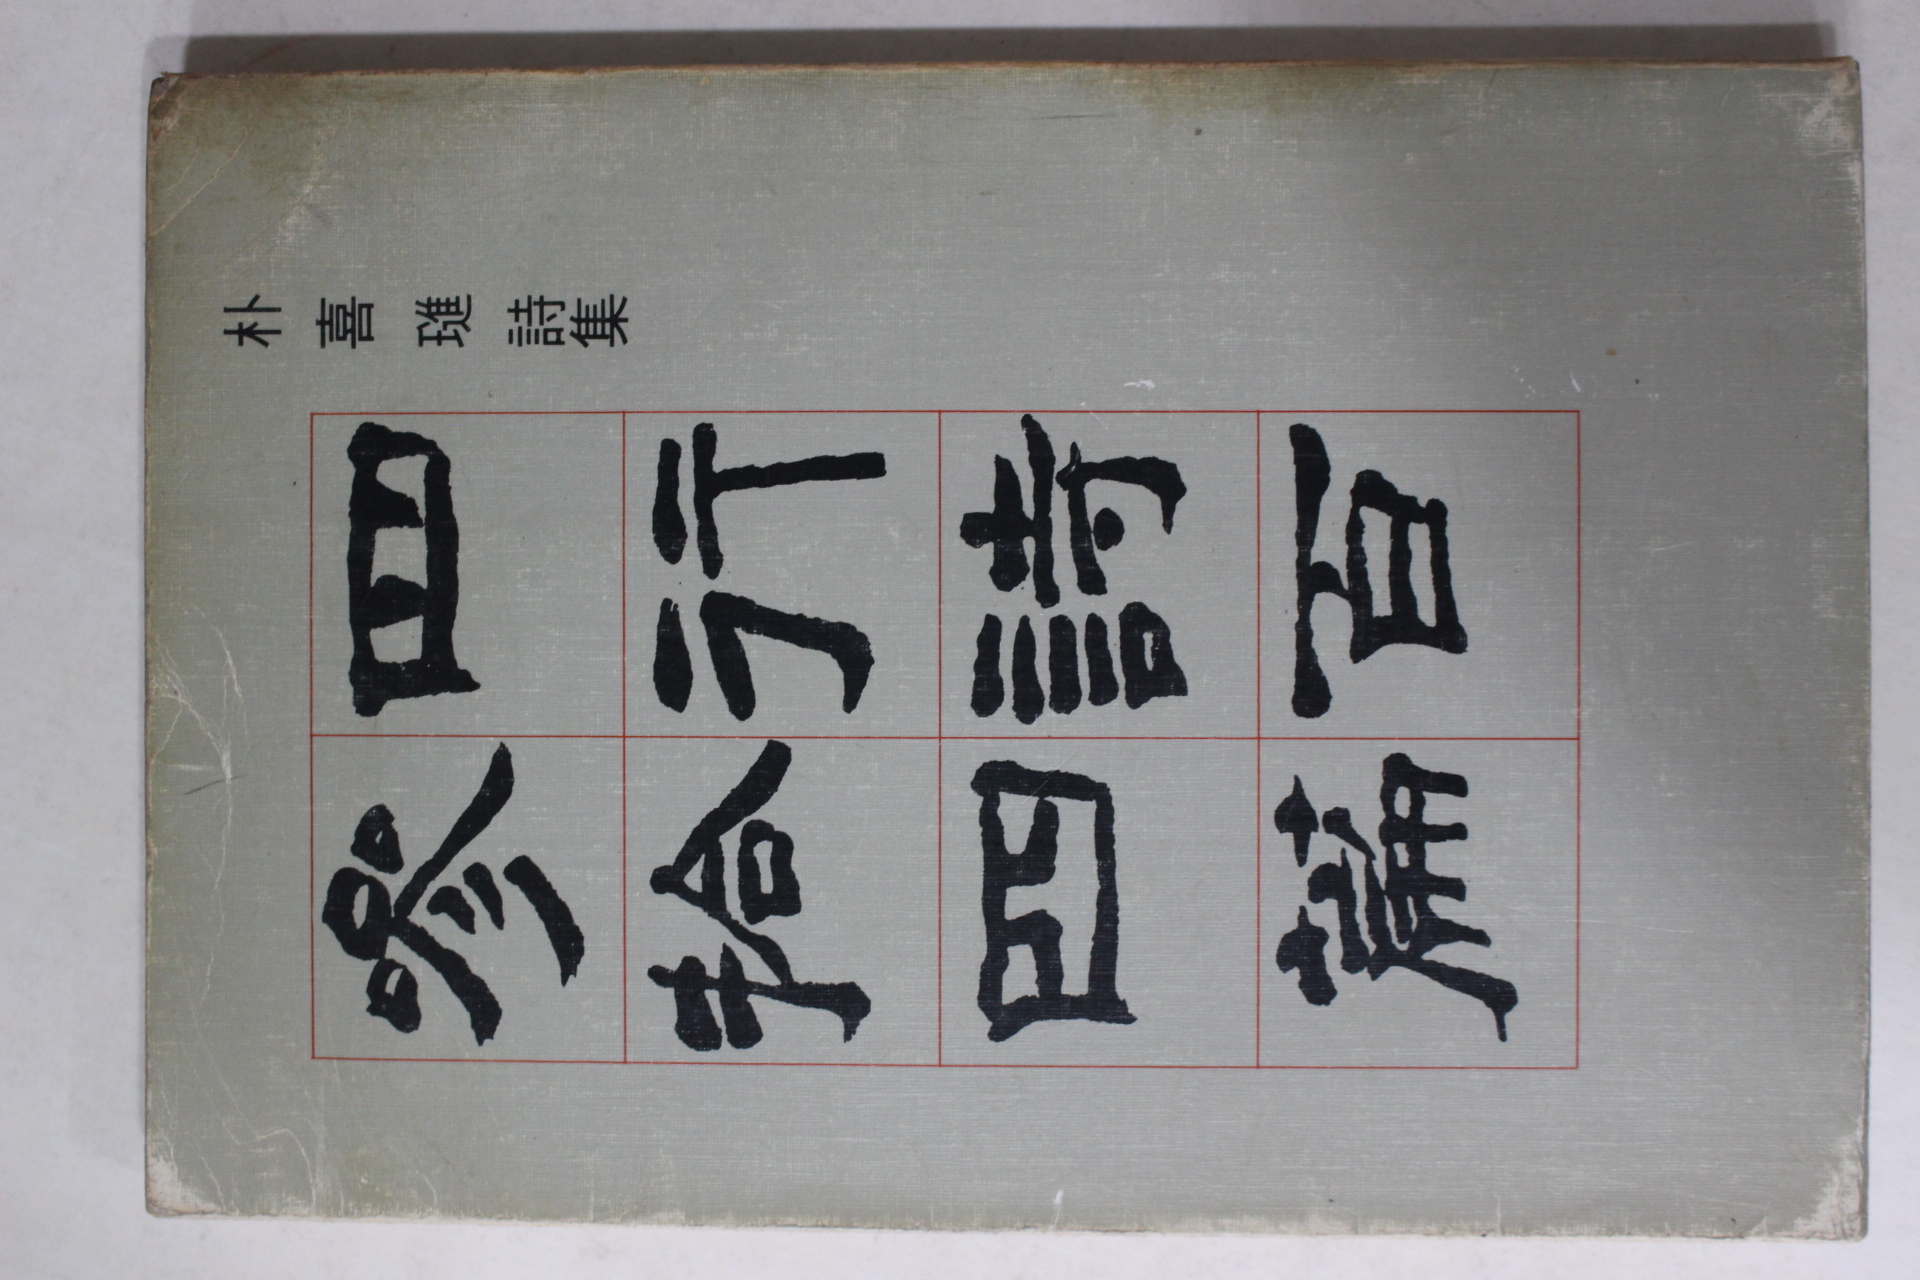 朴喜璡詩集
四行詩百
參拾四篇